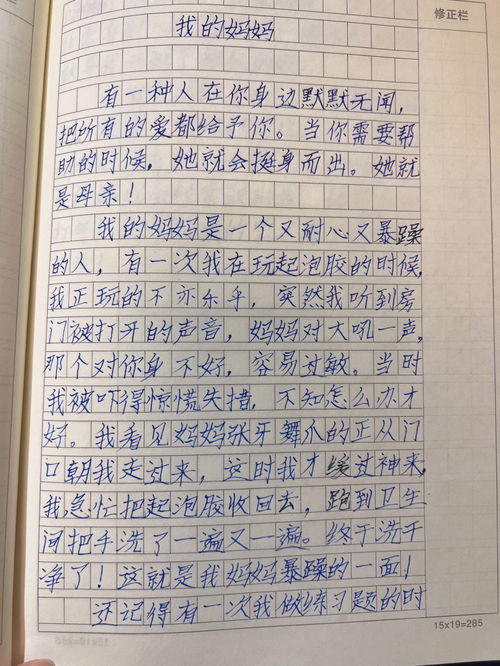 修正栏
我的妈妈
有一种人在你身边默默无闻，
把所有的爱都给予你。当你需要帮
助的时候，她就会挺身而出。她就
是母亲！
我的妈妈是一个又耐心又暴躁
的人，有一次我在玩起泡胶的时候，
我正玩的不亦乐乎，突然我听到房
门被打开的声音，妈妈对大吼一声，
那个对你身不好，容易过敏。当时
我被吓得惊慌失措，不知怎么办才
好。我看见妈妈张牙舞爪的正从门
口朝我走过来，这时我才缓过神来，
我急忙把起泡胶收回去，跑到卫生
间把手洗了一遍又一遍。终于洗干
净了！这就是我妈妈暴躁的一面！
还记得有一次我做练习题的时
15x19=285